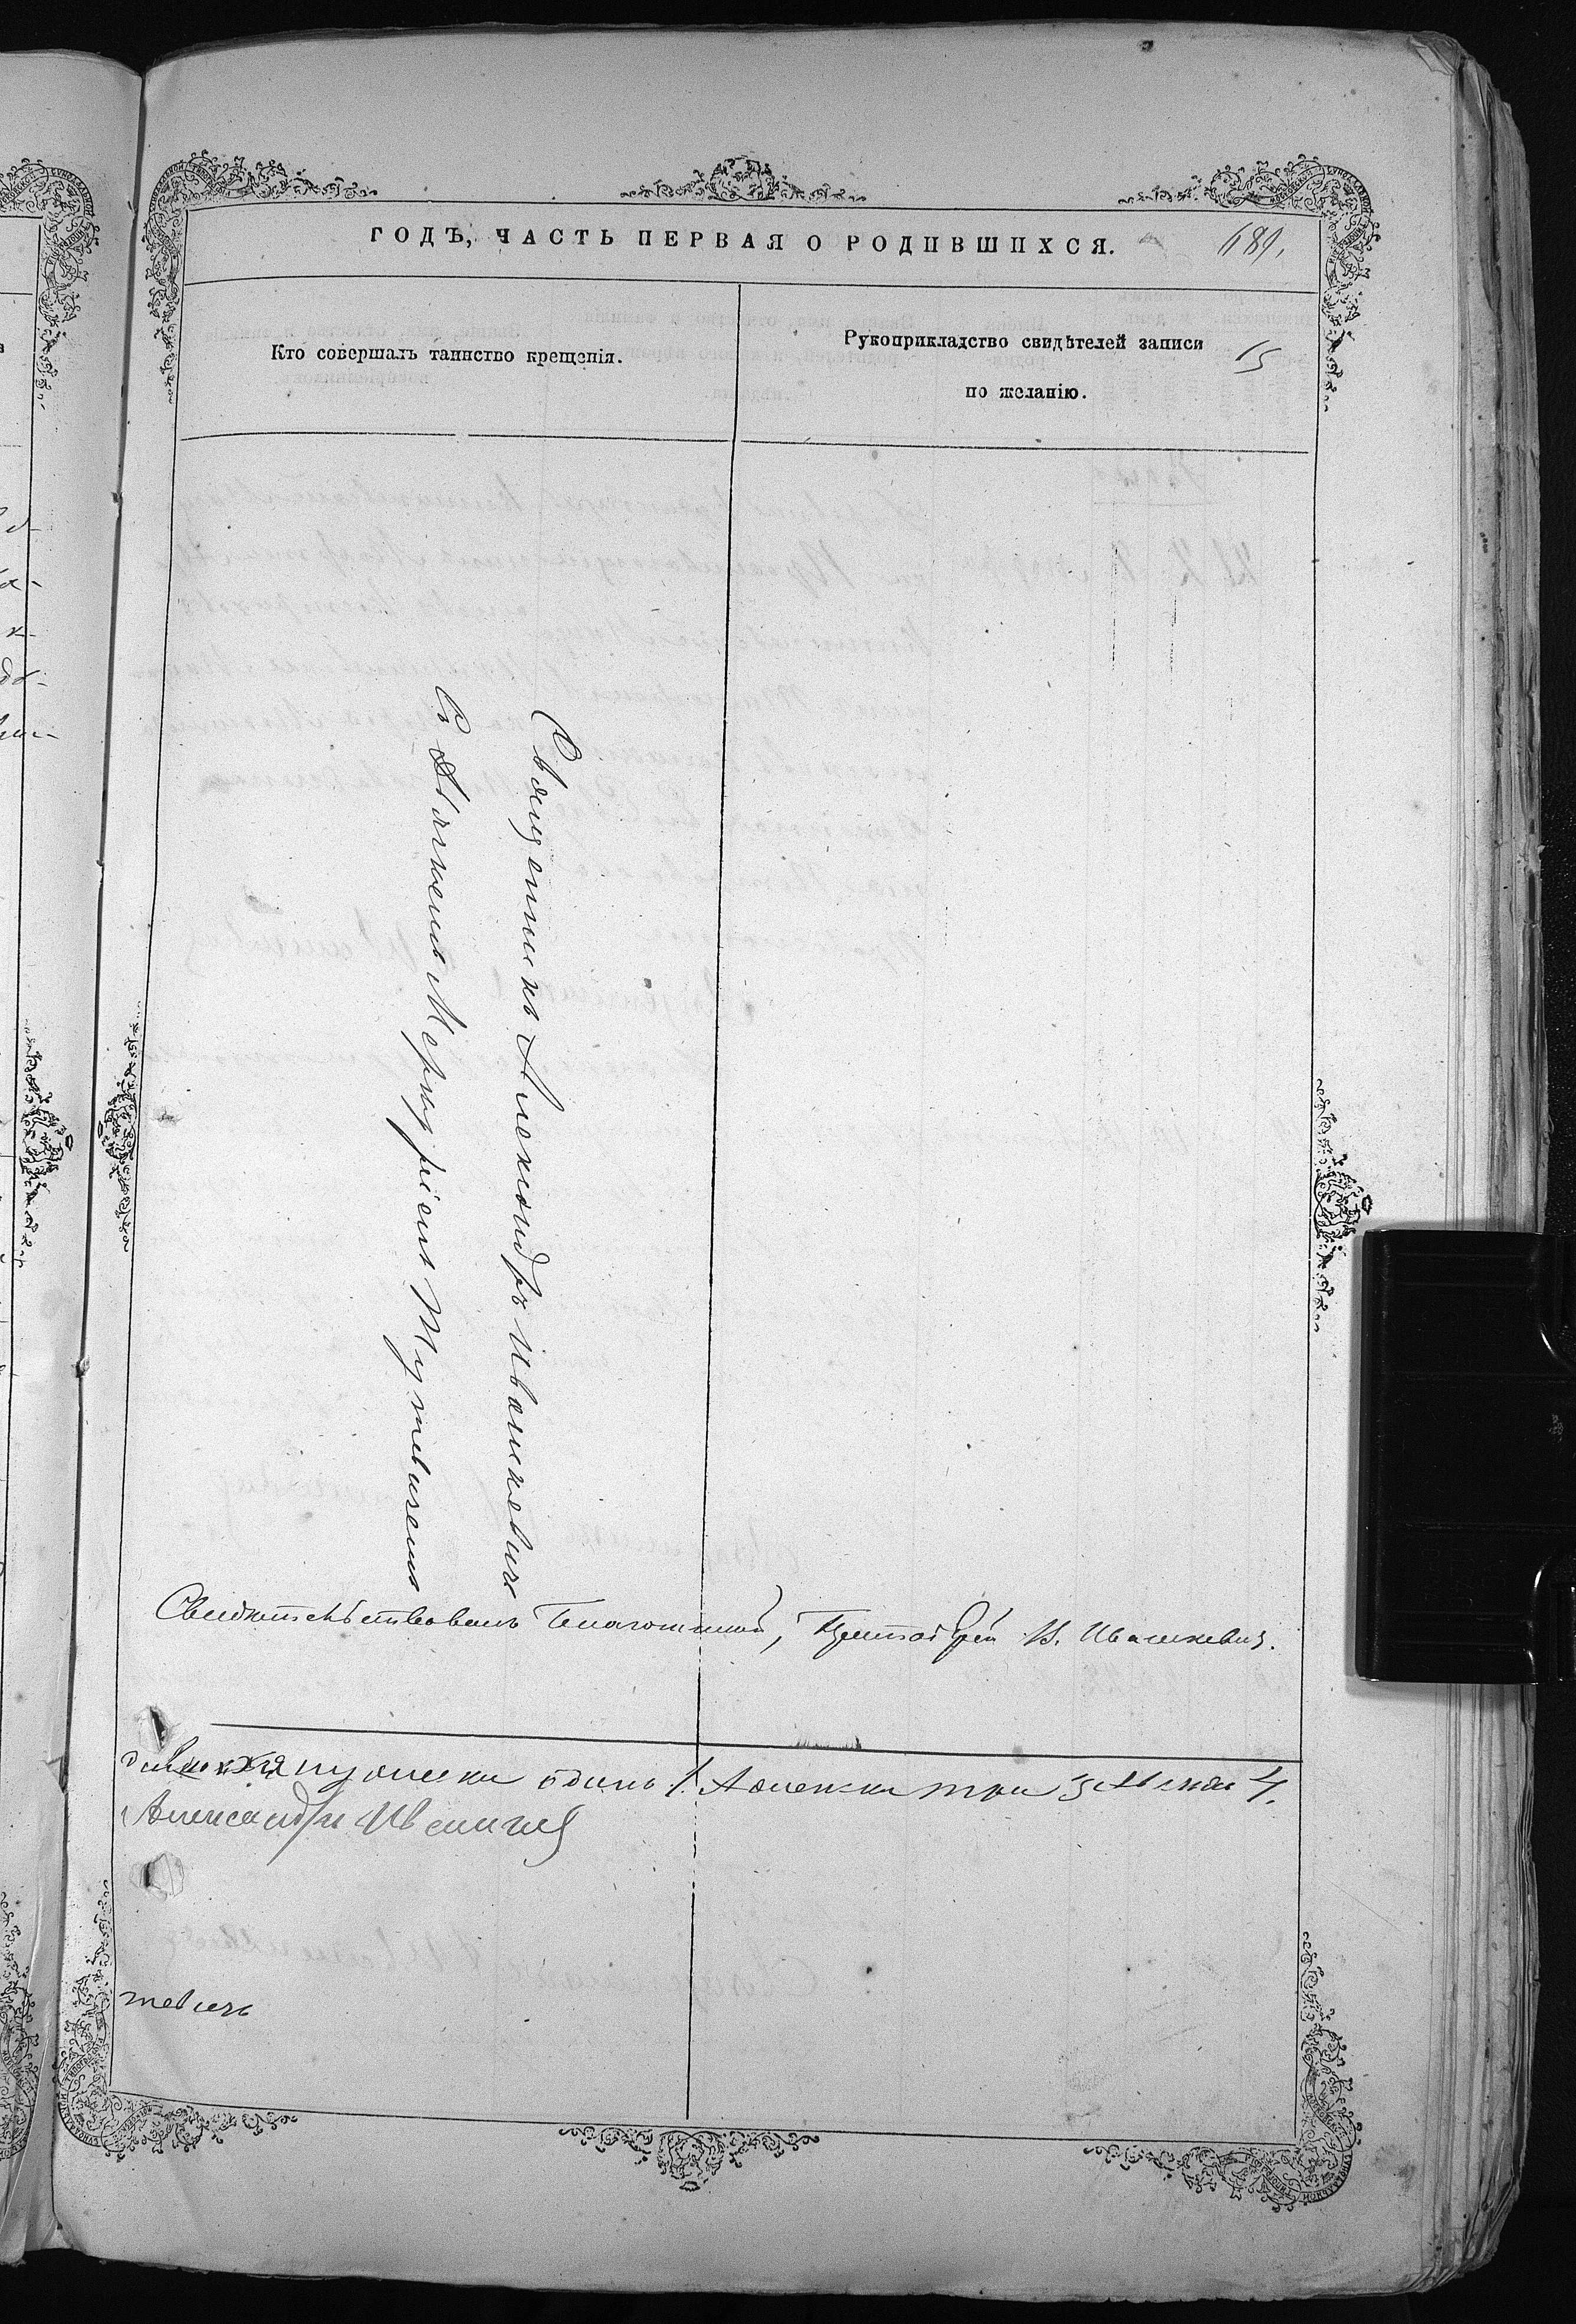 ГОДЪ, ЧАСТЬ ПЕРВАЯ О РОДИВШИХСЯ.
689.
Кто совершалъ таинство крещенія.
Рукоприкладство свидѣтелей записи
по желанію.
15
Священникъ Александръ Ивашкевичъ
Съ Дьячкомъ Меркуріемъ
Свидѣтельствовалъ Благочинный, И. Ивашкевичъ.
мужеска одинъ 1. женска три 3 4.
Александръ
тевичъ